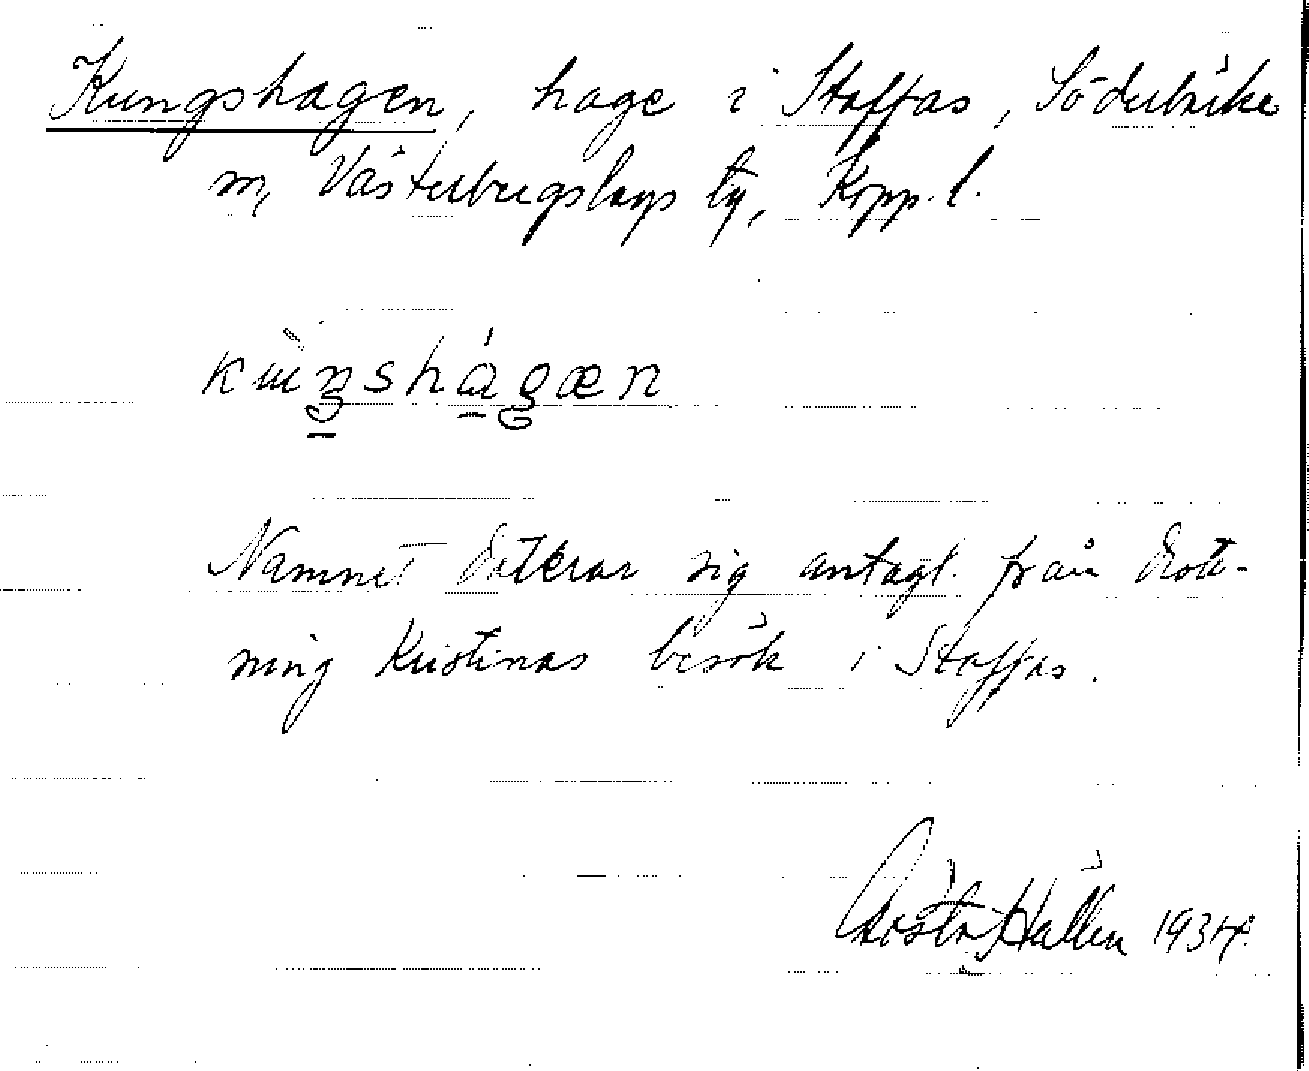 Kungshagen, hage i Staffas, Söderbärke
sn, Västerbergslags tg, Kopp. l.
kuŋshágæn
Namnet daterar sig antagl. från Drott-
ning Kristinas besök i Staffas.
Gösta Hallén 1934.